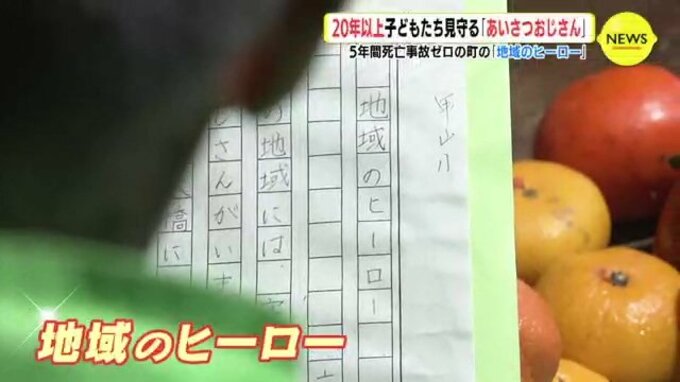 20年以上子どもたち見守る「あいさつおじさん」
5年間死亡事故ゼロの町の「地域のヒーロー」
NEWS
甲山小
地域のヒーロー
の地域には、
じさんがいま
橋に
地域のヒーロー